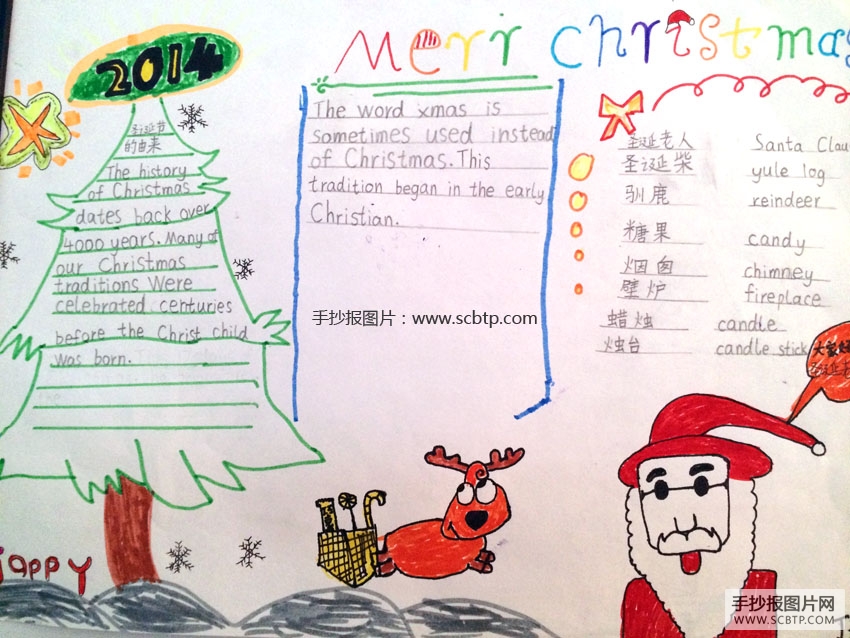 2014
Merri Christmas
圣诞节
的由来
The history
of Christmas
dates back over
4000 years. Many of
our Christmas
traditions Were
celebrated centuries
before the Christ child
was born.
The word xmas is
sometimes used instead
of Christmas. This
tradition began in the early
Christian.
圣诞老人 Santa Clau
圣诞柴 yule log
驯鹿 reindeer
糖果 candy
烟囱 chimney
壁炉 fireplace
蜡烛 candle
烛台 candle stick
手抄报图片：www.scbtp.com
大家好
Happy
手抄报图片网
WWW.SCBTP.COM